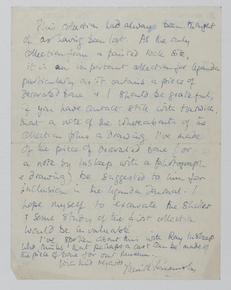 This collection had always been thought
of as having been lost. As the only
collection from a painted rock site
it is an important collection for Uganda
particularly as it contains a piece of
decorated bone & I should be grateful,
if you have contact still with
that a note of the whereabouts of the
collection (plus a drawing I've made
of the piece of decorated bone (or
a note by Inskeep with a photograph
& drawing) be suggested to him for
inclusion in the Uganda Journal. I
hope myself to excavate the shelter
& some study of the first collection
would be invaluable.
I've spoken about this with Ray Inskeep
who thinks that perhaps a cast can be made of
the piece of bone for our Museum.
With kind regards,